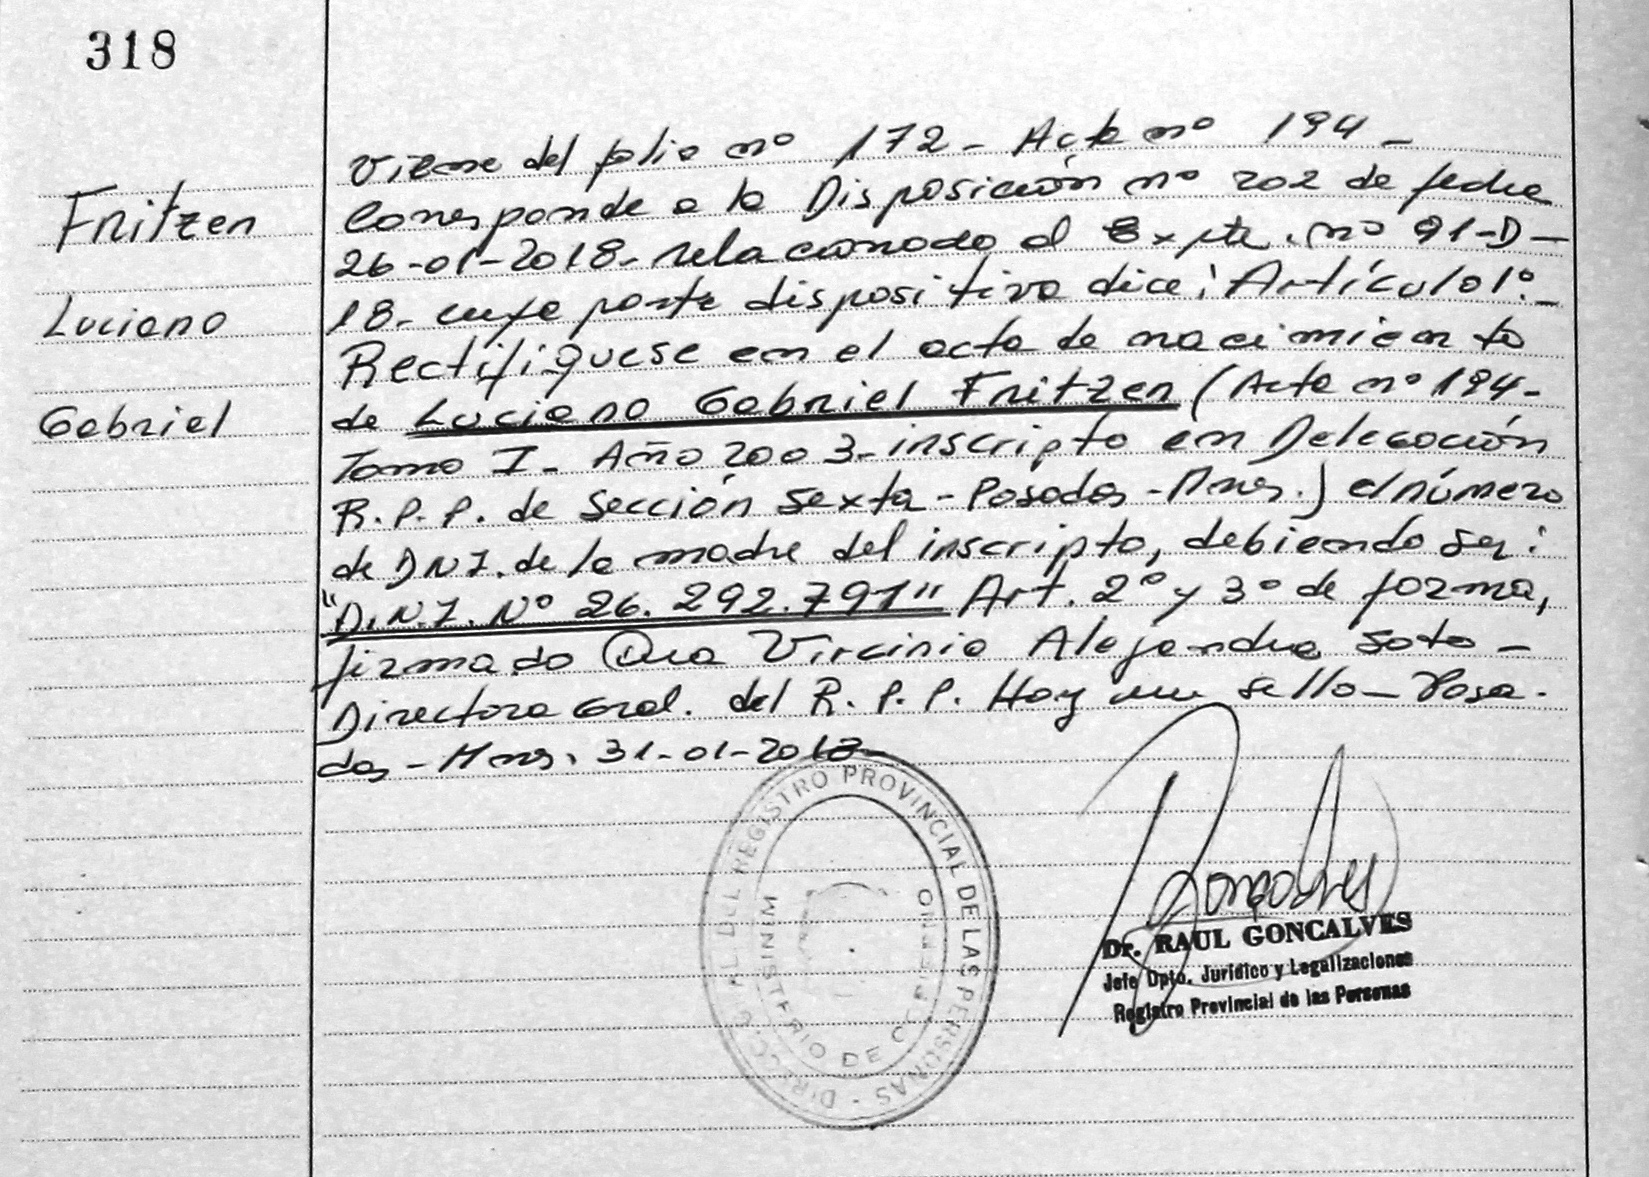 318
Fritzen
Luciano
Gabriel
Viene del folio nº 172 - Acta nº 194 -
Corresponde a la Disposición nº 202 de fecha
26-01-2018- relacionado al Expte. nº 91-D-
18- cuya parte dispositiva dice: Artículo 1º.-
Rectifíquese en el acta de nacimiento
de Luciano Gabriel Fritzen (Acta nº 194-
Tomo I - Año 2003- inscripto en Delegación
R.P.P. de Sección Sexta - Posadas - Mnes.) el número
de DNI. de la madre del inscripto, debiendo ser:
"D.N.I. Nº 26.292.791" Art. 2º y 3º de forma,
firmado Dra Virginia Alejandra Soto -
Directora Gral. del R.P.P. Hay un sello - Posa-
das - Mnes. 31-01-2018-
DIRECC. GRAL. DEL REGISTRO PROVINCIAL DE LAS PERSONAS -
MINISTERIO DE GOBIERNO
Dr. RAUL GONCALVES
Jefe Dpto. Jurídico y Legalizaciones
Registro Provincial de las Personas